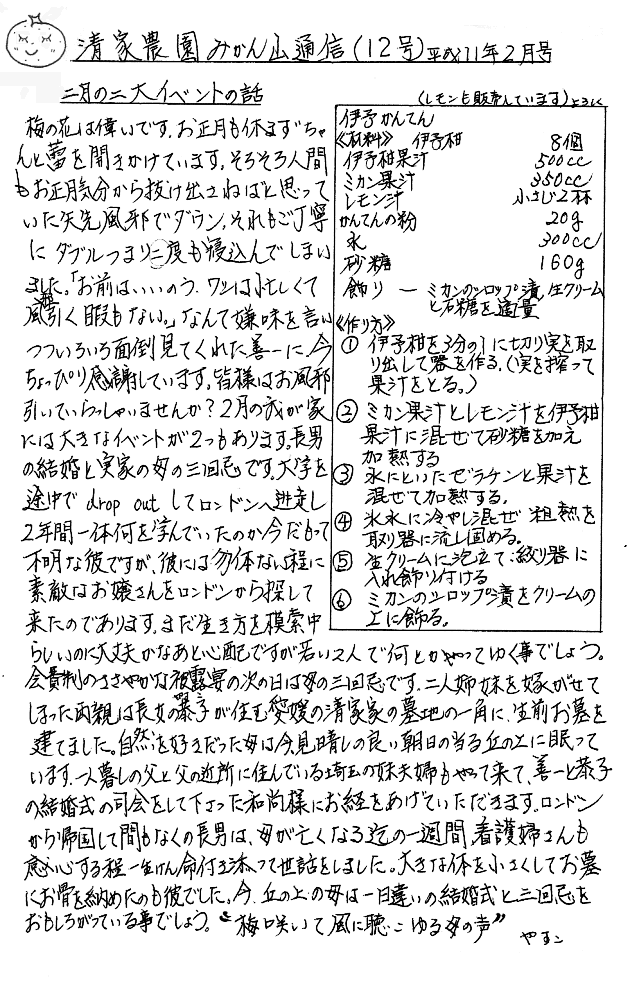 清家農園みかん山通信(12号)平成11年2月号
二月の二大イベントの話
梅の花は偉いです。お正月も休まずちゃ
んと蕾を開きかけています。そろそろ人間
もお正月気分から抜け出さねばと思って
いた矢先風邪でダウン。それもご丁寧
にダブルつまり二度も寝込んでしまい
ました。「お前は、いいのう、ワシは忙しくて
風邪引く暇もない。」なんて嫌味を言い
つついろいろ面倒見てくれた善一に、今
ちょっぴり感謝しています。皆様はお風邪
引いていらっしゃいませんか?2月の我が家
には大きなイベントが2つもあります。長男
の結婚と実家の母の三回忌です。大学を
途中で drop out してロンドンへ逃走し
2年間一体何を学んでいたのか今だもって
不明な彼ですが、彼には勿体ない程に
素敵なお嬢さんをロンドンから探して
来たのであります。まだ生き方を模索中
らしいのに大丈夫かなあと心配ですが若い2人で何とかやってゆく事でしょう。
会費制のささやかな披露宴の次の日は母の三回忌です。二人姉妹を嫁がせて
しまった両親は長女の恭子が住む愛媛の清家家の墓地の一角に、生前お墓を
建てました。自然を好きだった母は今見晴しの良い朝日の当る丘の上に眠って
います。一人暮しの父と父の近所に住んでいる埼玉の妹夫婦もやって来て、善一と恭子
の結婚式の司会をして下さった和尚様にお経をあげていただきます。ロンドン
から帰国して間もなくの長男は、母が亡くなる迄の一週間、看護婦さんも
感心する程一生けん命付き添って世話をしました。大きな体を小さくしてお墓
にお骨を納めたのも彼でした。今、丘の上の母は一日違いの結婚式と三回忌を
おもしろがっている事でしょう。“梅咲いて風に聴こゆる母の声”
やすこ
(レモンも販売しています)よろしく
伊予かんてん
《材料》 伊予柑 8個
伊予柑果汁 500cc
ミカン果汁 350cc
レモン汁 小さじ2杯
かんてんの粉 20g
水 300cc
砂糖 160g
飾り ー ミカンのシロップ漬、生クリーム
と砂糖を適量
《作り方》
① 伊予柑を3分の1に切り実を取
り出して器を作る。(実を搾って
果汁をとる。)
② ミカン果汁とレモン汁を伊予柑
果汁に混ぜて砂糖を加え
加熱する
③ 水にといたゼラチンと果汁を
混ぜて加熱する。
④ 氷水に冷やし混ぜ 粗熱を
取り器に流し固める。
⑤ 生クリームに泡立て、絞り器に
入れ飾り付ける
⑥ ミカンのシロップ漬をクリームの
上に飾る。